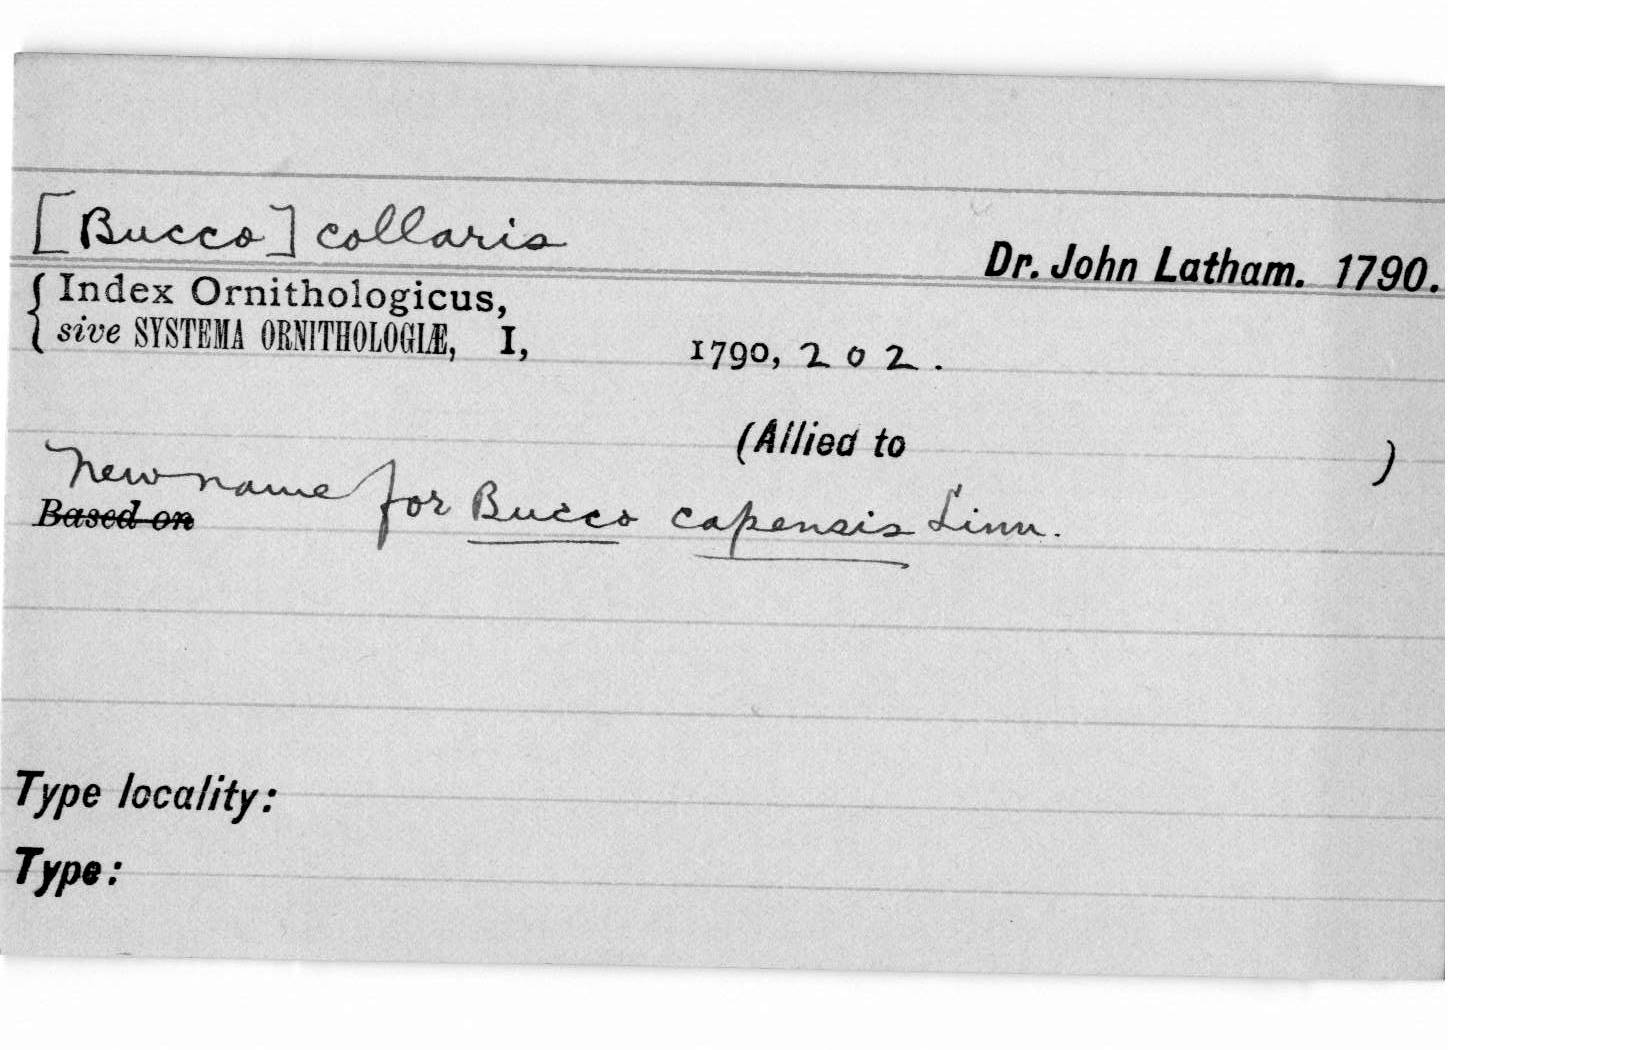 [Bucco] collaris
Dr. John Latham. 1790.
Index Ornithologicus,
sive SYSTEMA ORNITHOLOGIÆ, I, 1790, 202.
(Allied to )
New name for Bucco capensis Linn.
Based on
Type locality:
Type: